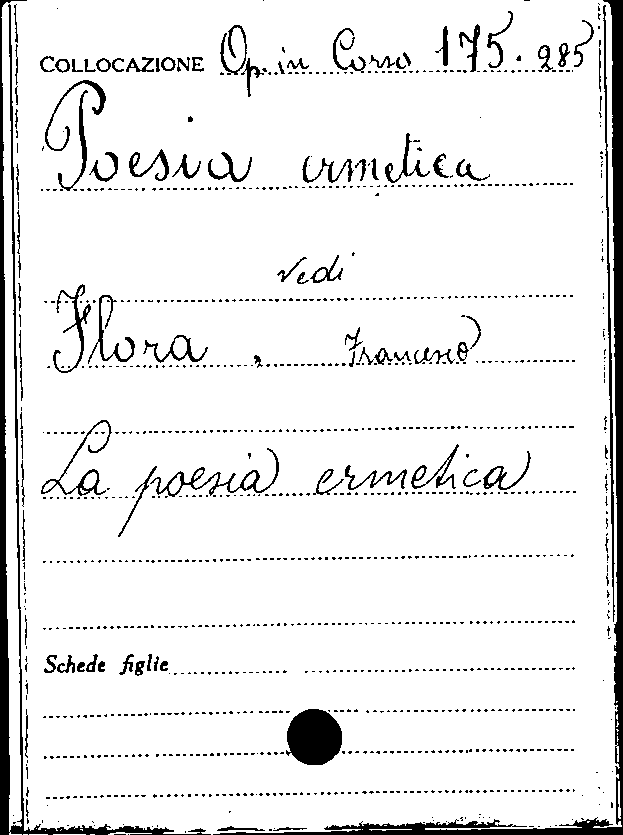 COLLOCAZIONE Op. in Corso 175.285
Poesia ermetica
vedi
Flora, Francesco
La poesia ermetica
Schede figlie